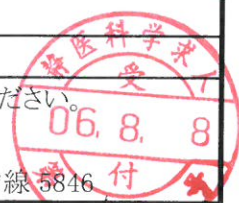 医科学求人
受
ださい。
06. 8. 8
線 5846
付